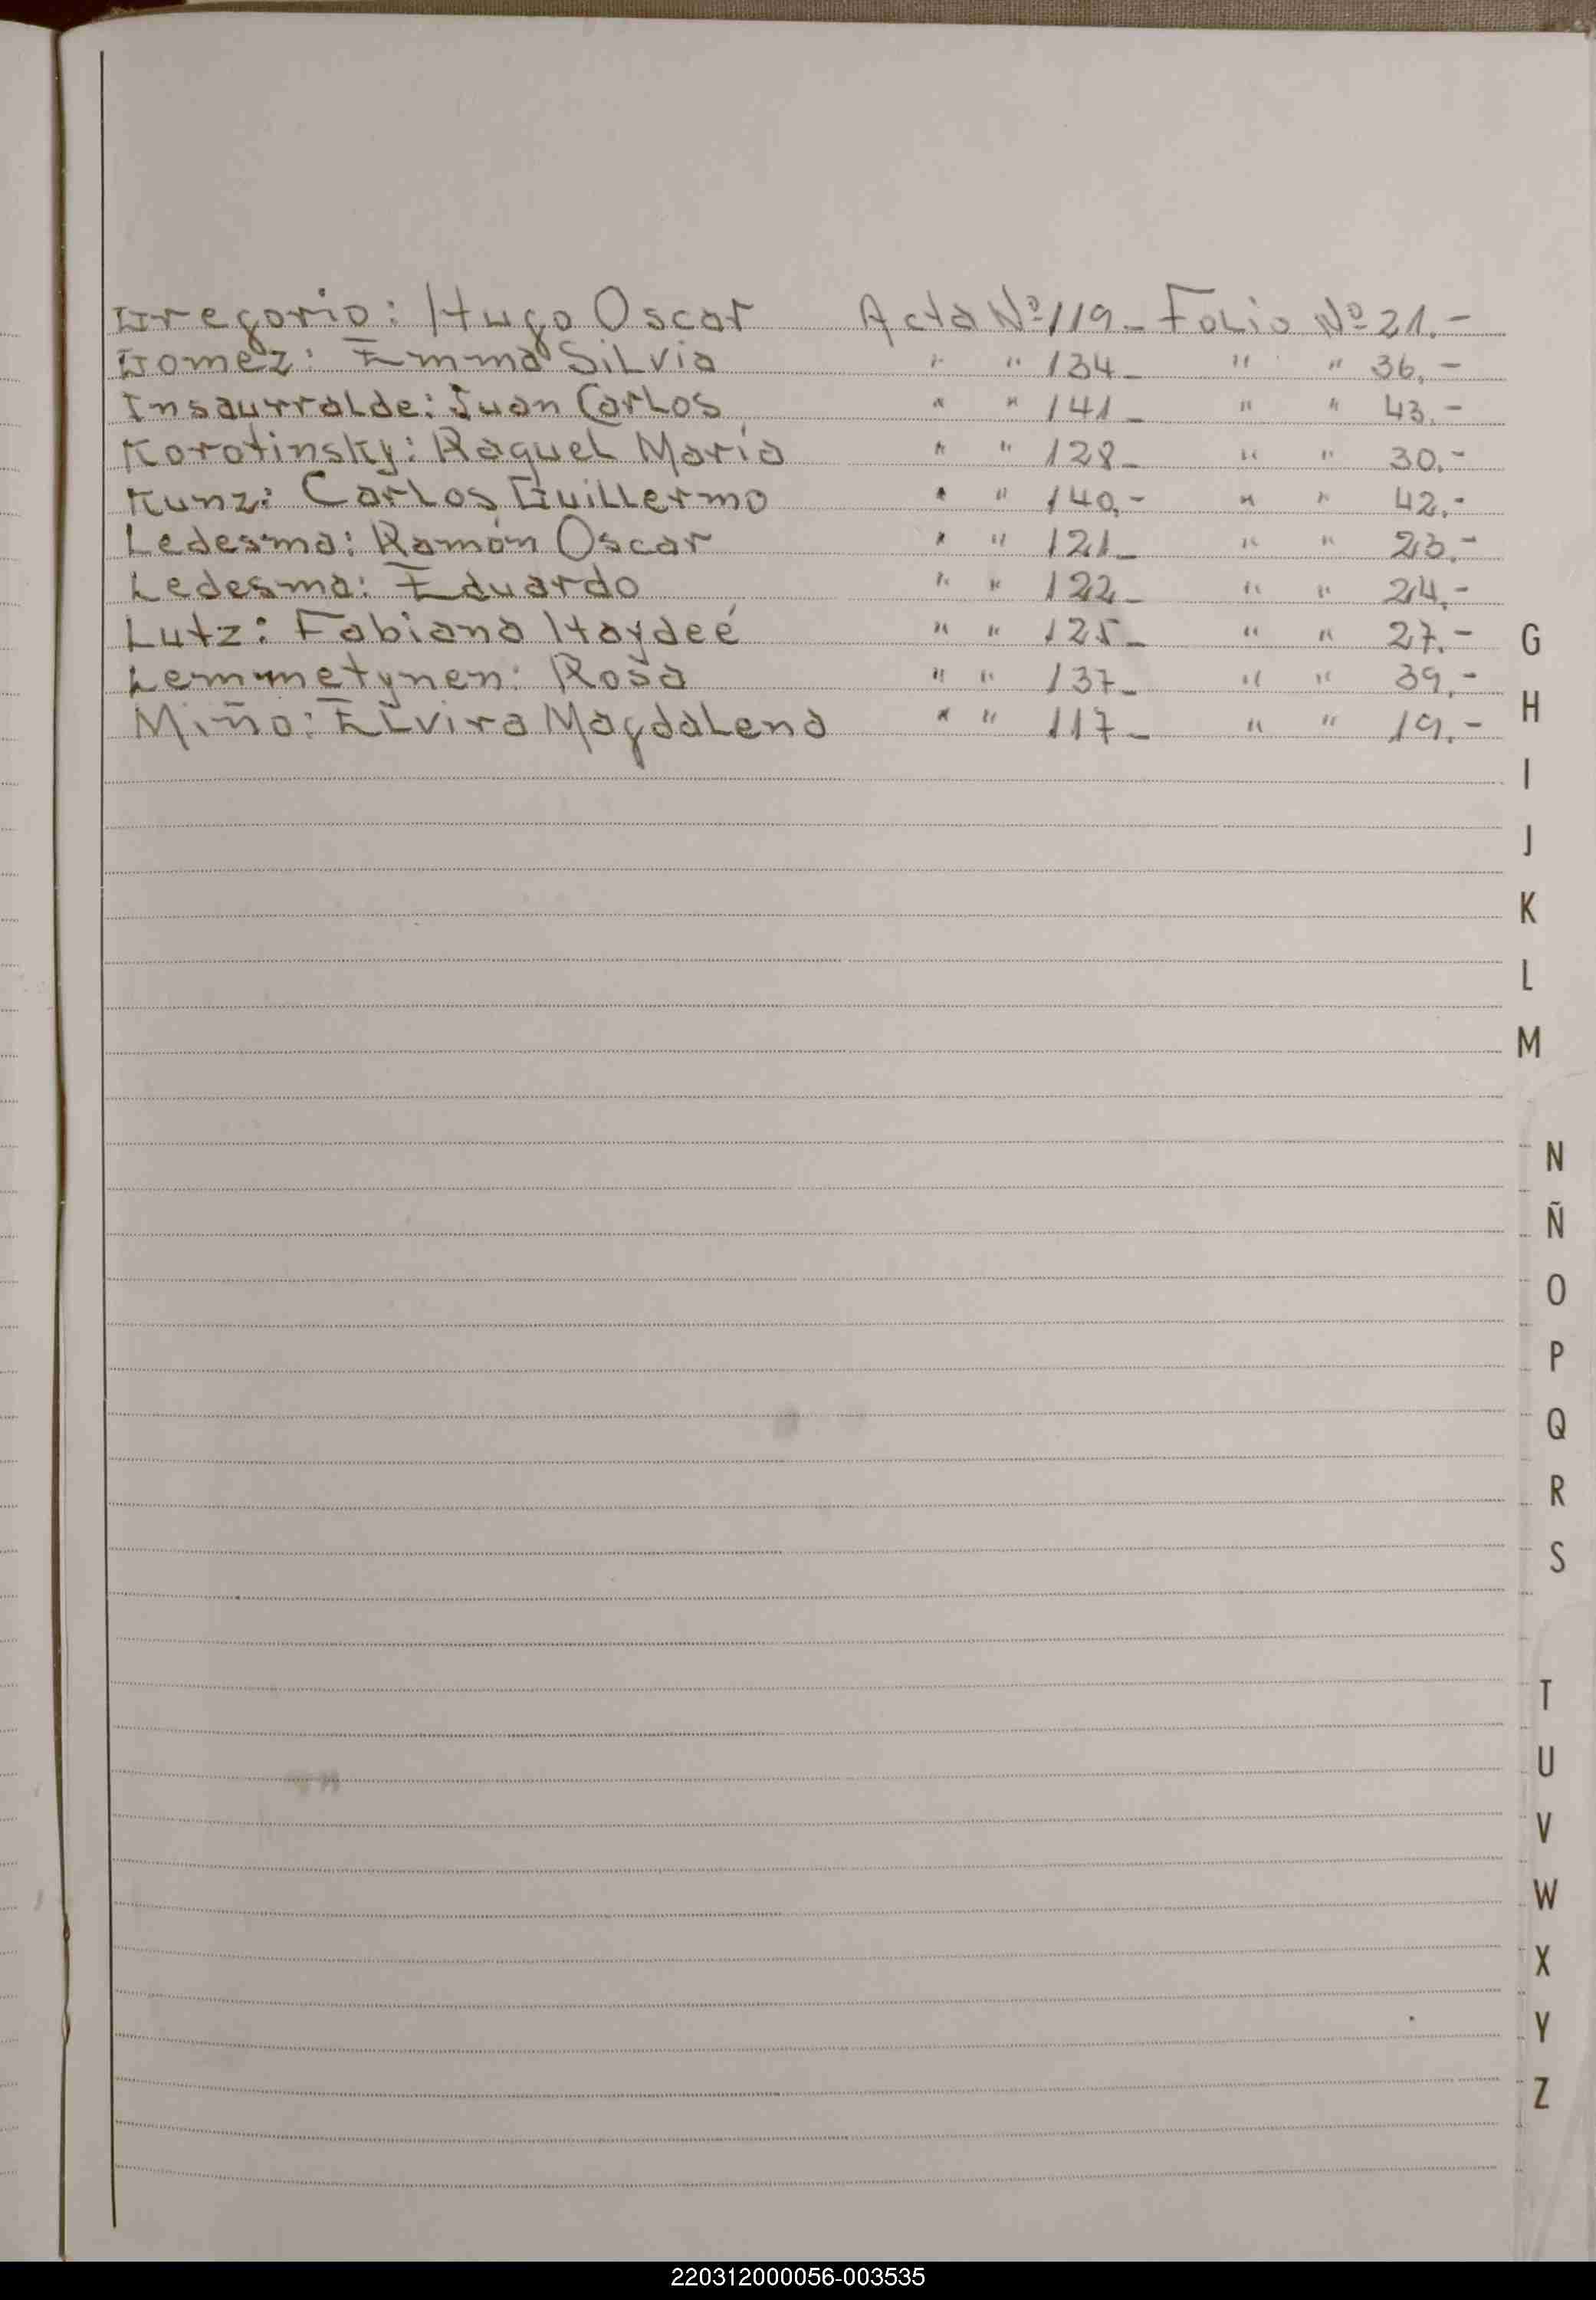 Gregorio: Hugo Oscar Acta Nº 119.- Folio Nº 21.-
Gomez: Emma Silvia " " 134.- " " 36.-
Insaurralde: Juan Carlos " " 141.- " " 43.-
Korotinsky: Raquel María " " 128.- " " 30.-
Kunz: Carlos Guillermo " " 140.- " " 42.-
Ledesma: Ramón Oscar " " 121.- " " 23.-
Ledesma: Eduardo " " 122.- " " 24.-
Lutz: Fabiana Haydeé " " 125.- " " 27.-
Lemmetynen: Rosa " " 137.- " " 39.-
Miño: Elvira Magdalena " " 117.- " " 19.-
G
H
I
J
K
L
M
N
Ñ
O
P
Q
R
S
T
U
V
W
X
Y
Z
220312000056-003535